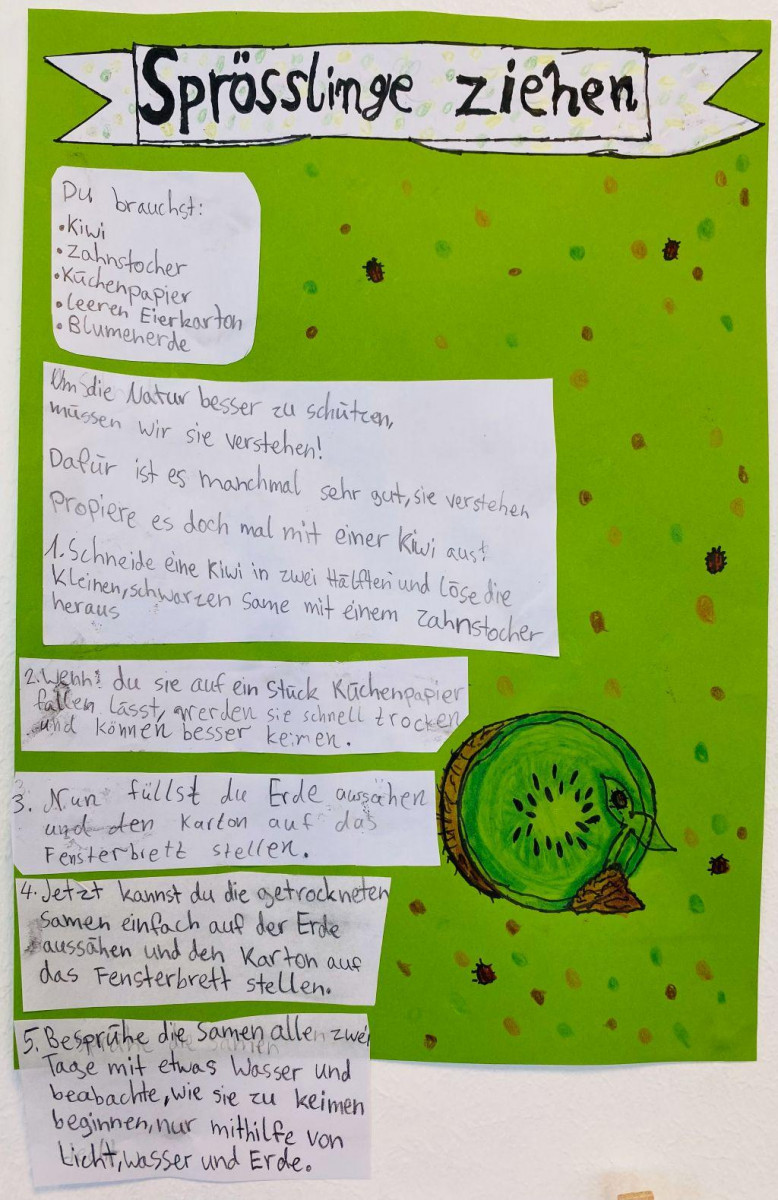 Sprösslinge ziehen
Du brauchst:
• Kiwi
• Zahnstocher
• Küchenpapier
• leeren Eierkarton
• Blumenerde
Um die Natur besser zu schützen,
müssen wir sie verstehen!
Dafür ist es manchmal sehr gut, sie verstehen
Propiere es doch mal mit einer Kiwi aus!
1. Schneide eine Kiwi in zwei Hälften und löse die
kleinen, schwarzen Same mit einem Zahnstocher
heraus
2. Wenn du sie auf ein Stück Küchenpapier
fallen lässt, werden sie schnell trocken
und können besser keimen.
3. Nun füllst du Erde aussähen
und den Karton auf das
Fensterbrett stellen.
4. Jetzt kannst du die getrockneten
Samen einfach auf der Erde
aussähen und den Karton auf
das Fensterbrett stellen.
5. Besprühe die Samen allen zwei
Tage mit etwas Wasser und
beabachte, wie sie zu keimen
beginnen, nur mithilfe von
Licht, wasser und Erde.